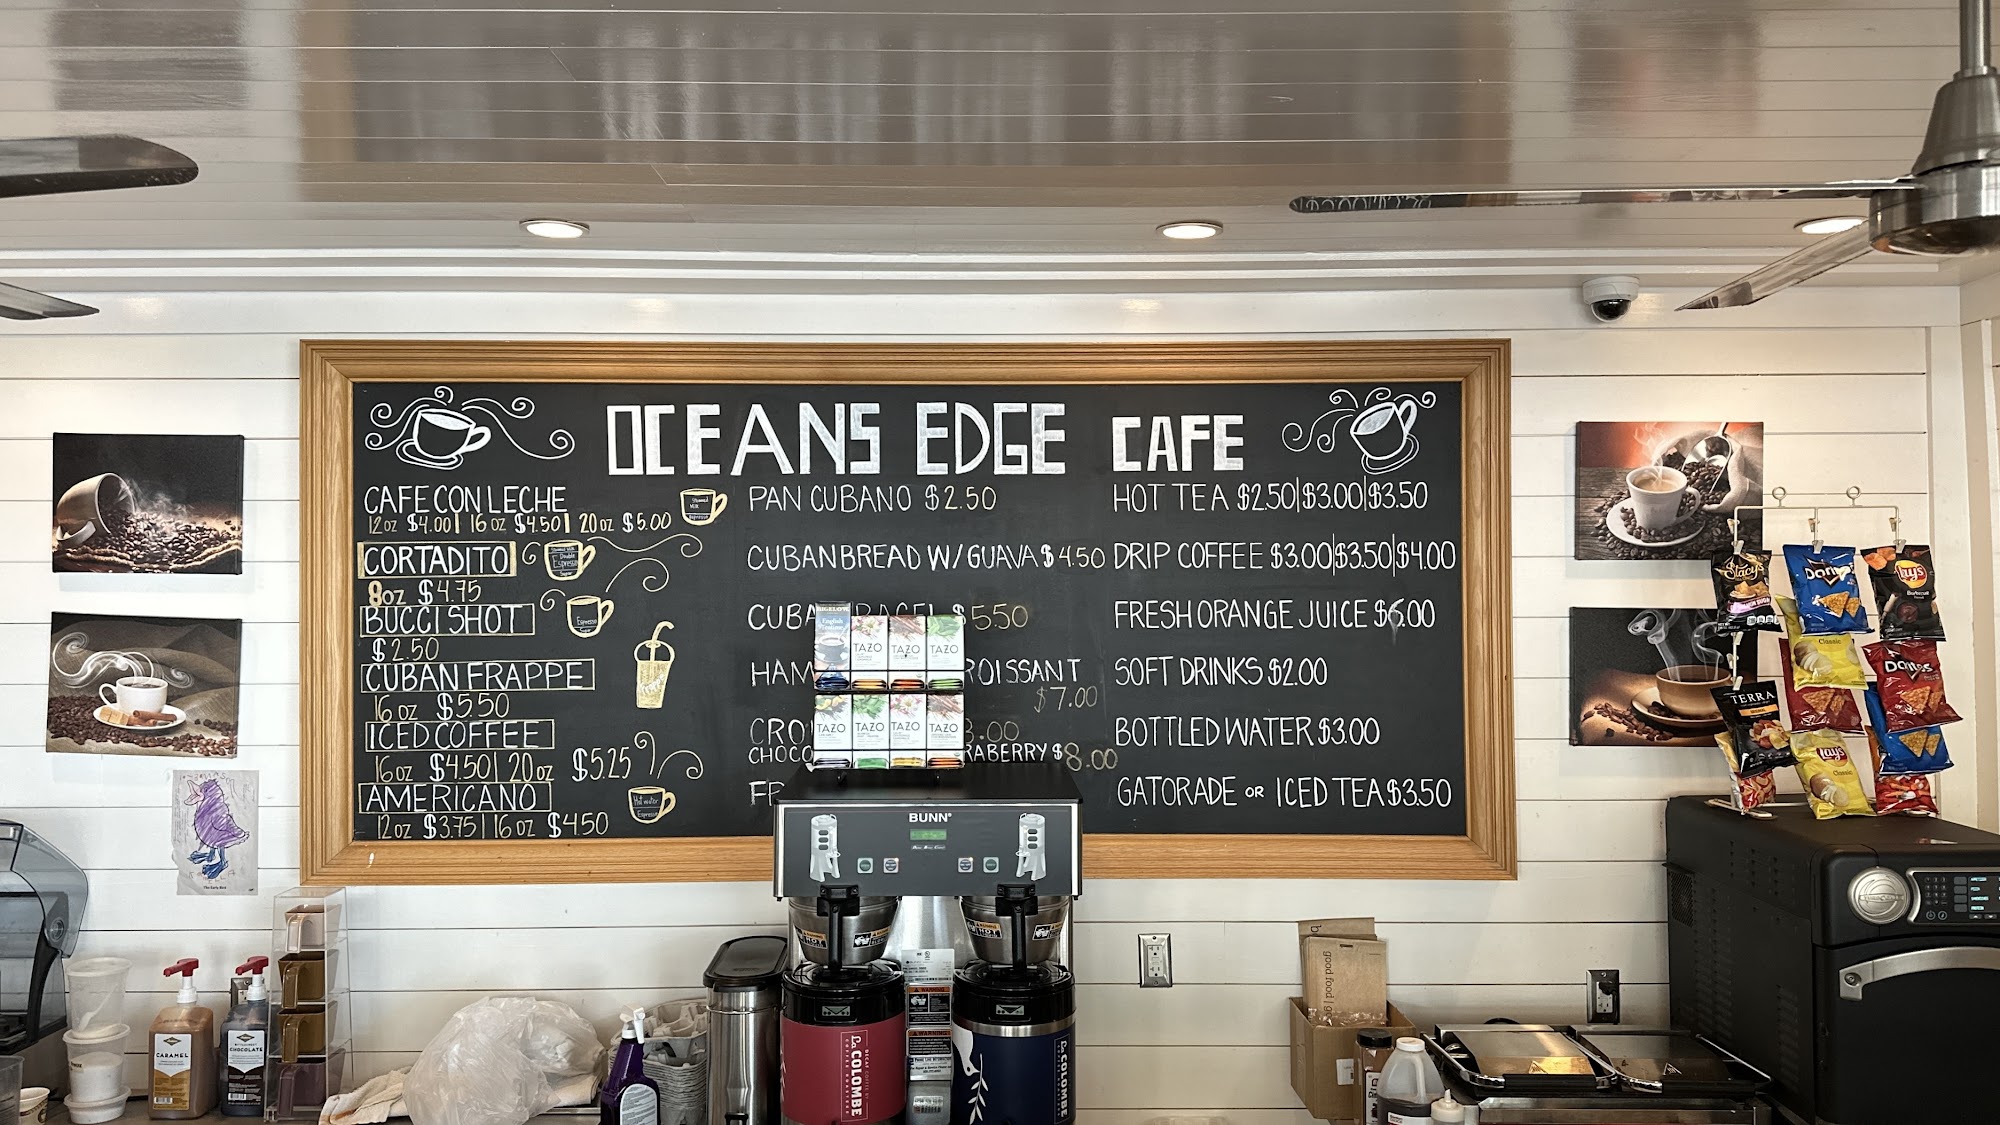 OCEANS EDGE CAFE
CAFE CON LECHE
12oz $4.00| 16oz $4.50| 20oz $5.00
CORTADITO
8oz $4.75
BUCCI SHOT
$2.50
CUBAN FRAPPE
16oz $5.50
ICED COFFEE
16oz $4.50| 20oz $5.25
AMERICANO
12oz $3.75| 16oz $4.50
Espresso
Double
Espresso
Sugar
Espresso
Hot water
Espresso
PAN CUBANO $2.50
CUBAN BREAD W/ GUAVA $4.50
$5.50
$7.00
$8.00
HOT TEA $2.50|$3.00|$3.50
DRIP COFFEE $3.00|$3.50|$4.00
FRESH ORANGE JUICE $6.00
SOFT DRINKS $2.00
BOTTLED WATER $3.00
GATORADE OR ICED TEA $3.50
BIGELOW
English
TAZO
TAZO
TAZO
TAZO
TAZO
TAZO
TAZO
BUNN
Stacy's
Doritos
Lay's
Barbecue
Classic
Doritos
TERRA
Lay's
Classic
The Early Bird
CARAMEL
CHOCOLATE
WARNING
WARNING
La COLOMBE
COFFEE ROASTERS
La COLOMBE
good food